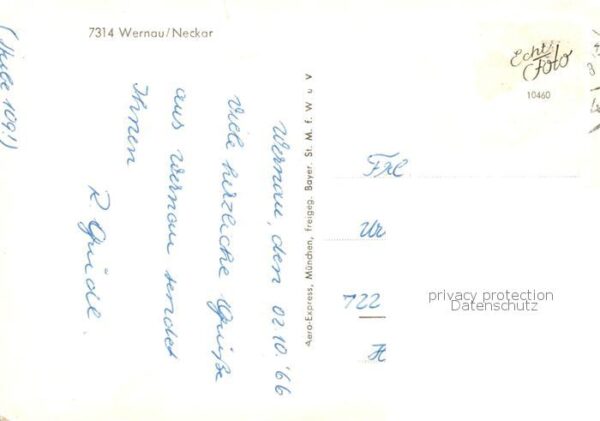 7314 Wernau/Neckar
Wernau, den 02.10.'66
Viele herzliche Grüße
aus Wernau sendet
Ihnen
R. Gridl.
Aero-Express, München, freigeg. Bayer. St. M. f. W u V
Echt
Foto
10460
Frl
Ur
722
H
privacy protection
Datenschutz